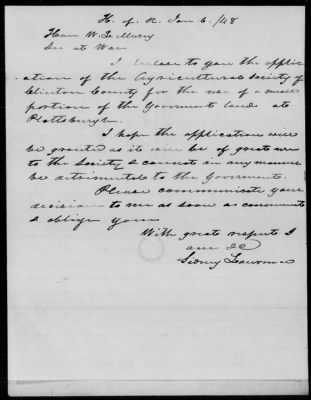 H. of R. Jan 6. /48
Hon W.
Sec at War
I inclose to you the applic
ation of the Agricultural Society of
Clinton County for the use of a small
portion of the Goverment lands at
Plattsburgh.
I hope the application will
be granted as it will be of great use
to the Society & cannot in any manner
be detrimental to the Goverment.
Please communicate your
decision to me as soon as convenient
& oblige yours
With great respect I
am &c
Sidney Lawrence